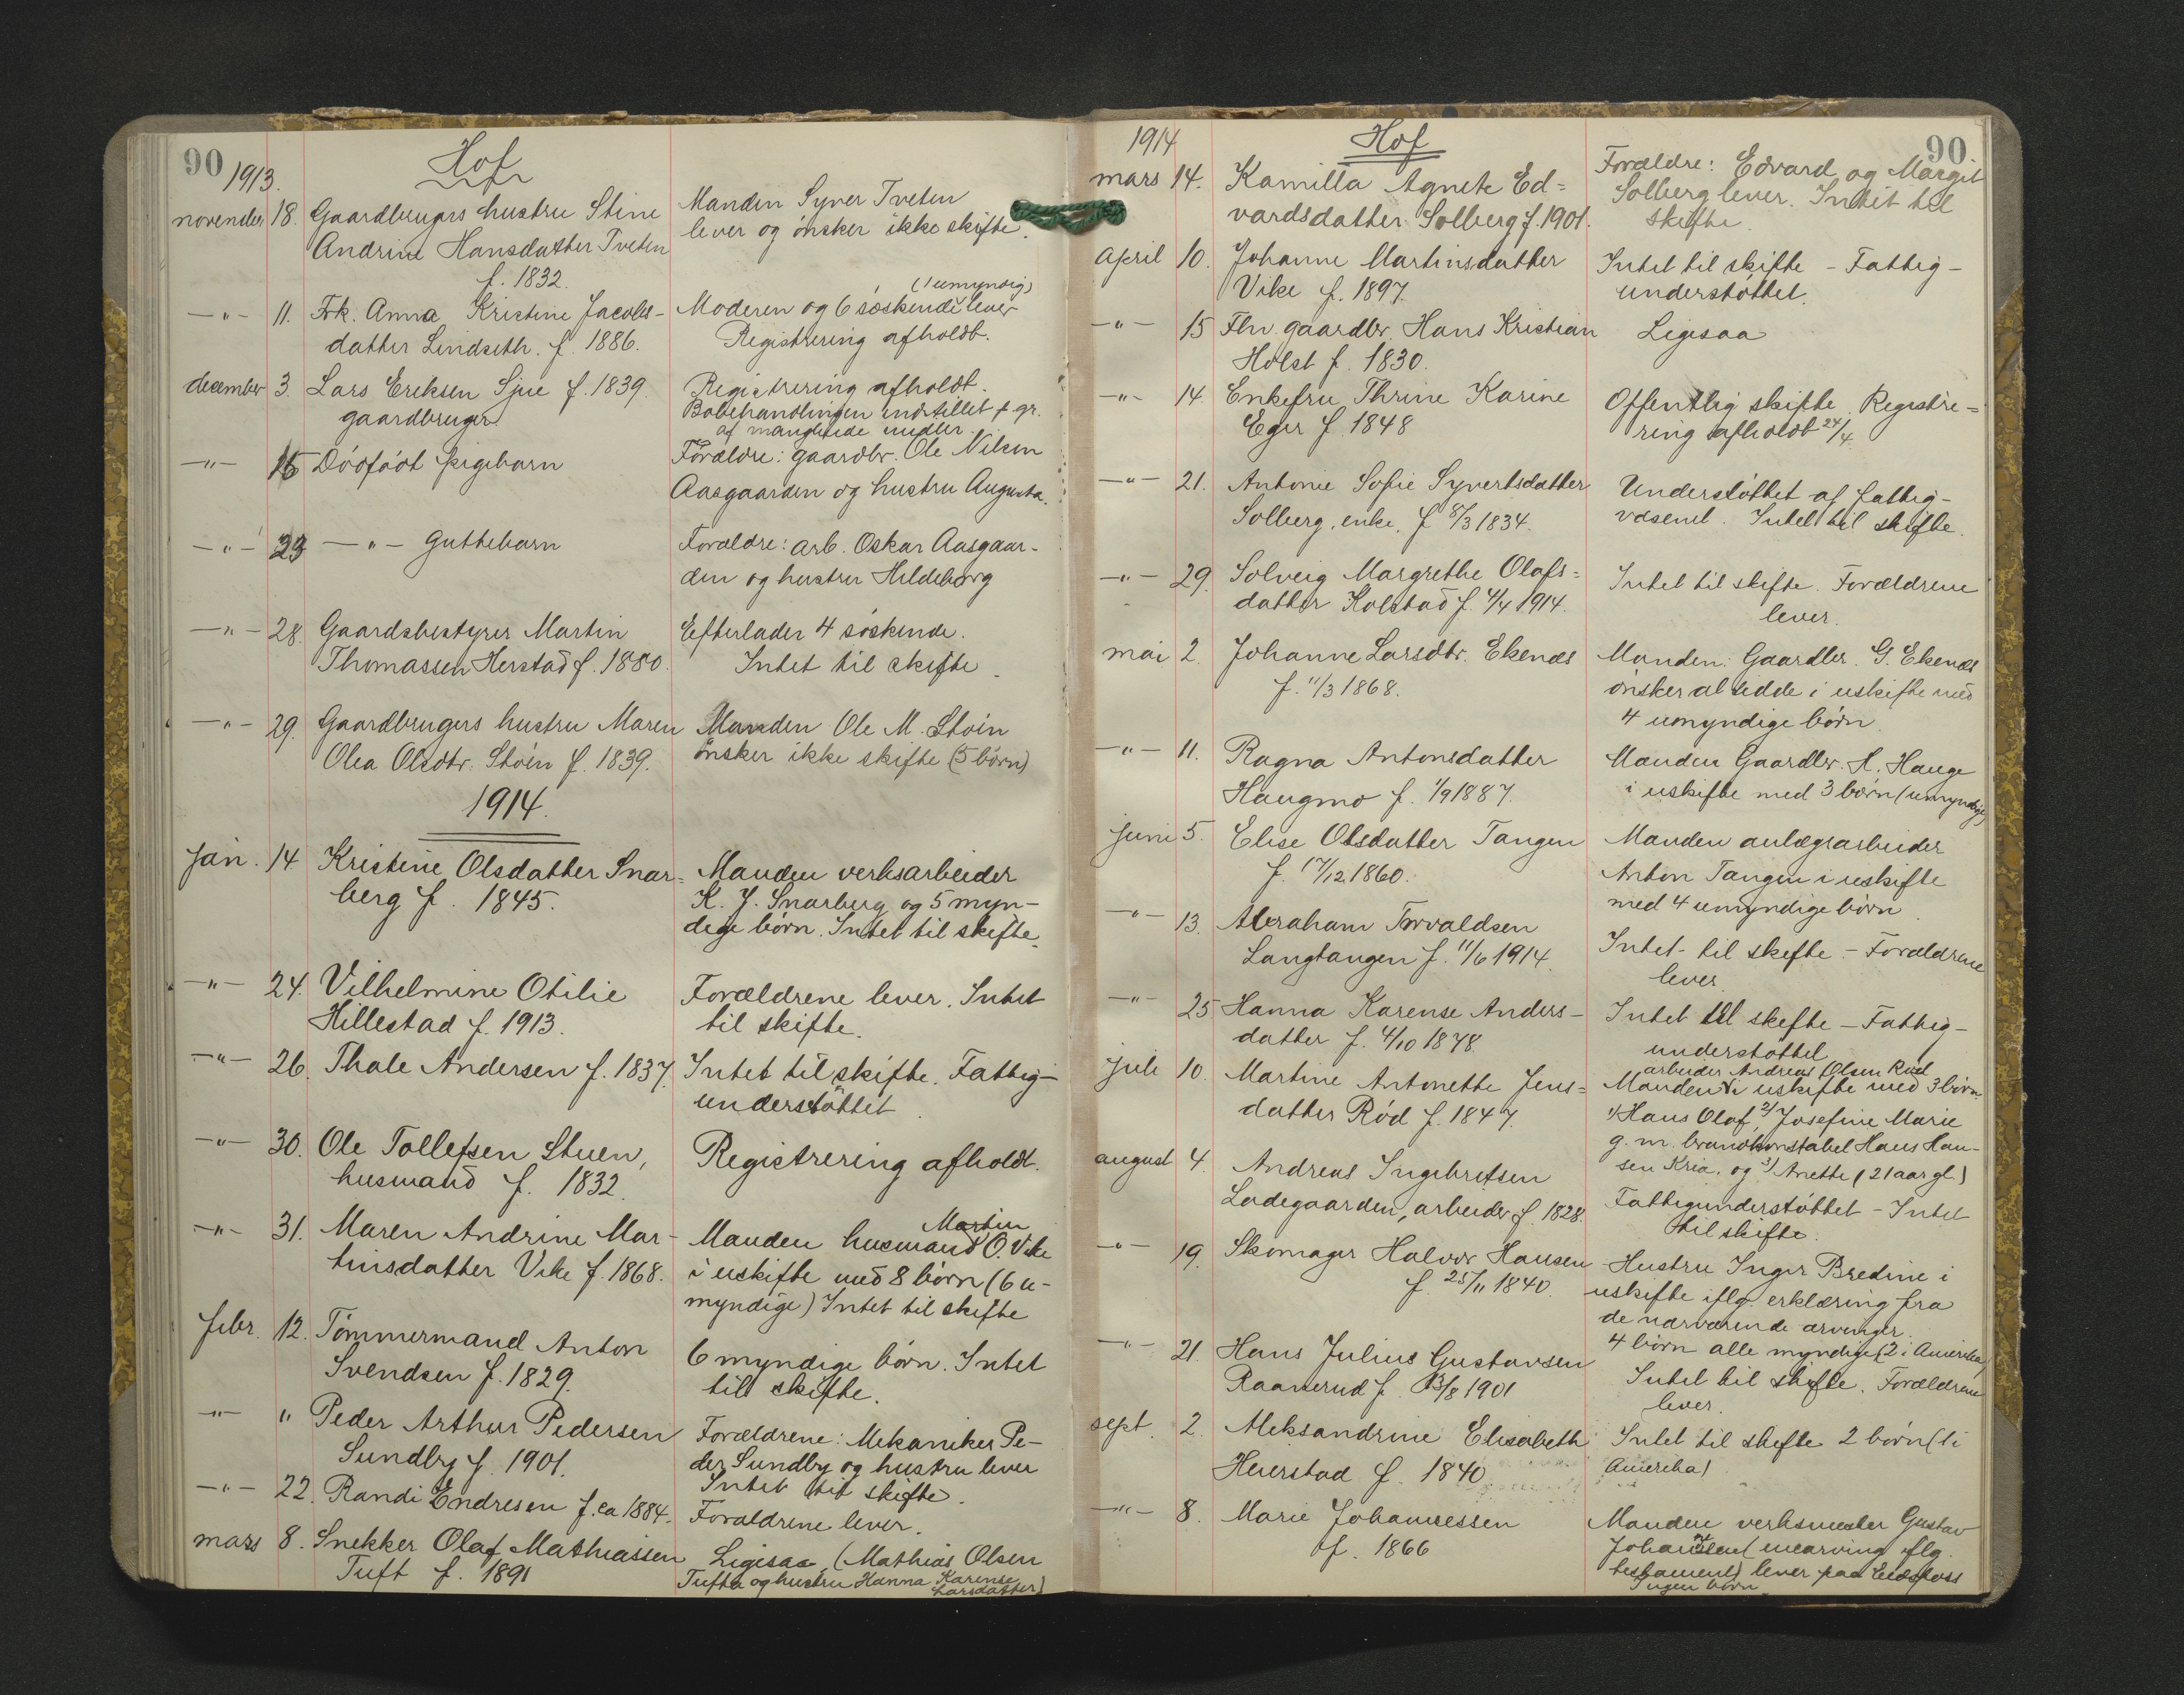 90
1913.
Hof
november 18. Gaardbrugers hustru Stine
Andrine Hansdatter Tveten
f. 1832.
Manden Syver Tveten
lever og ønsker ikke skifte.
—"— 11. Frk. Anna Kristine Jacobs-
datter Lindseth. f. 1886.
(1 umyndig)
Moderen og 6 søskende lever
Registrering afholdt.
december 3. Lars Eriksen Sjue f. 1839.
gaardbruger
Registrering afholdt.
Bobehandlingen indstillet p gr.
af manglende midler.
—"— 15 Dødfødt pigebarn
Forældre: gaardbr. Ole Nilsen
Aasgaarden og hustru Augusta.
—"— 23 —"— guttebarn
Forældre: arb. Oskar Aasgaar-
den og hustru Hildeborg
—"— 28. Gaardsbestyrer Martin
Thomassen Herstad f. 1880.
Efterlader 4 søskende.
Intet til skifte.
—"— 29. Gaardbrugers hustru Maren
Olea Olsdtr. Støén f. 1839.
Manden Ole M. Støén
ønsker ikke skifte (5 børn)
1914.
jan. 14 Kristine Olsdatter Snar-
berg f. 1845.
Manden verksarbeider
K. J. Snarberg og 5 myn-
dige børn. Intet til skifte.
—"— 24. Vilhelmine Otilie
Hillestad f. 1913.
Forældrene lever. Intet
til skifte.
—"— 26. Thale Andersen f. 1837.
Intet til skifte. Fattig-
understøttet.
—"— 30. Ole Tollefsen Stuen,
husmand f. 1832.
Registrering afholdt.
—"— 31. Maren Andrine Mar-
tinsdatter Vike f. 1868.
Martin
Manden husmand O. Vike
i uskifte med 8 børn (6 u-
myndige) Intet til skifte
febr. 12. Tømmermand Anton
Svendsen f. 1829.
6 myndige børn. Intet
til skifte.
—"— " Peder Arthur Pedersen
Sundby f. 1901.
Forældrene: Mekaniker Pe-
der Sundby og hustru lever
Intet til skifte.
—"— 22. Randi Endresen f. ca 1884.
Forældrene lever.
mars 8. Snekker Olaf Mathiassen
Tuft f. 1891
Ligesaa (Mathias Olsen
Tufta og hustru Hanna Karense
Larsdatter)
1914
Hof
90
mars 14. Kamilla Agnete Ed-
vardsdatter Solberg f. 1901.
Forældre: Edvard og Margit
Solberg lever. Intet til
skifte.
April 10. Johanne Martinsdatter
Vike f. 1897.
Intet til skifte - Fattig-
understøttet.
—"— 15 Fhv. gaardbr. Hans Kristian
Holst f. 1830.
Ligesaa
—"— 14. Enkefru Thrine Karine
Eger f. 1848
Offentlig skifte. Registre-
ring afholdt 24/4.
—"— 21. Antonie Sofie Syvertsdatter
Solberg, enke, f 8/3 1834.
Understøttet af fattig-
væsenet. Intet til skifte.
—"— 29. Solveig Margrethe Olafs-
datter Kolstad f. 4/4 1914.
Intet til skifte. Forældrene
lever.
mai 2. Johanne Larsdtr. Ekenæs
f. 11/3 1868.
Manden: Gaardbr. G. Ekenæs
ønsker at sidde i uskifte med
4 umyndige børn.
—"— 11. Ragna Antonsdatter
Haugmo f. 1/9 1887.
Manden Gaardbr. H. Hauge
i uskifte med 3 børn (umyndige)
juni 5. Elise Olsdatter Tangen
f. 17/12 1860.
Manden anlægsarbeider
Anton Tangen i uskifte
med 4 umyndige børn.
—"— 13. Abraham Torvaldsen
Langtangen f. 11/6 1914.
Intet til skifte - Forældrene
lever.
—"— 25 Hanna Karense Anders-
datter f. 4/10 1848.
Intet til skifte - Fattig-
understøttet
juli 10. Martine Antonette Jens-
datter Rød f. 1847.
arbeider Andreas Olsen Rød
Manden i uskifte med 3 børn.
1/ Hans Olaf, 2/ Josefine Marie
g. m. brandkonstabel Hans Han-
sen Kria, og 3/ Anette (21 aar gl.)
august 4. Andreas Ingebretsen
Ladegaarden, arbeider f. 1828.
Fattigunderstøttet - Intet
til skifte.
—"— 19. Skomager Halvor Hansen
f. 25/11 1840.
Hustru Inger Bredine i
uskifte iflg. erklæring fra
de nærværende arvinger.
4 børn alle myndige (2 i Amerika)
—"— 21. Hans Julius Gustavsen
Raanerud f. 13/8 1901
Intet til skifte. Forældrene
lever.
sept. 2. Aleksandrine Elisabeth
Heierstad f. 1840
Intet til skifte 2 børn (1 i
Amerika)
—"— 8. Marie Johannessen
f. 1866
Manden verksmester Gustav
Johansen (enearving iflg.
testament) lever paa Eidsfoss
Ingen børn